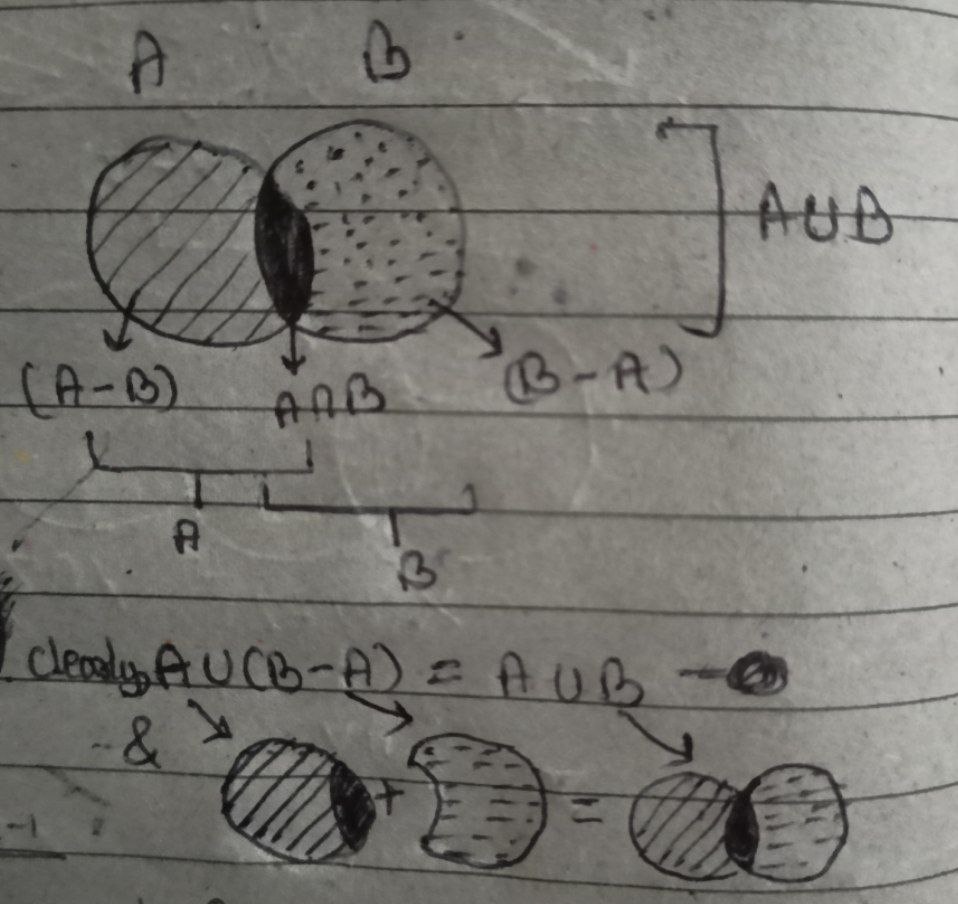 A B
A∪B
(A-B) A∩B (B-A)
A
B
clearly A∪(B-A) = A∪B -
&
+ =
-1